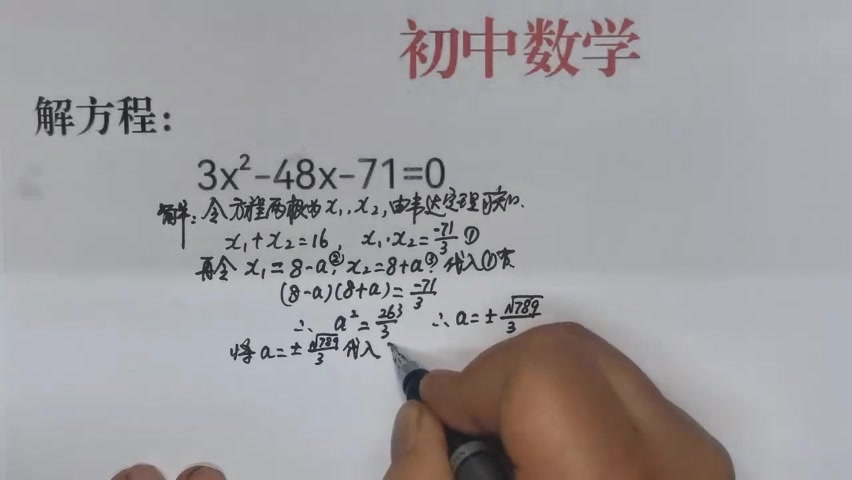 初中数学
解方程：
3x²-48x-71=0
解：令方程两根为x₁,x₂,由韦达定理可知.
x₁+x₂=16, x₁·x₂=-71/3 ①
再令 x₁=8-a②, x₂=8+a③ 代入①式
(8-a)(8+a)=-71/3
∴ a²=263/3 ∴a=±√789/3
将a=±√789/3 代入